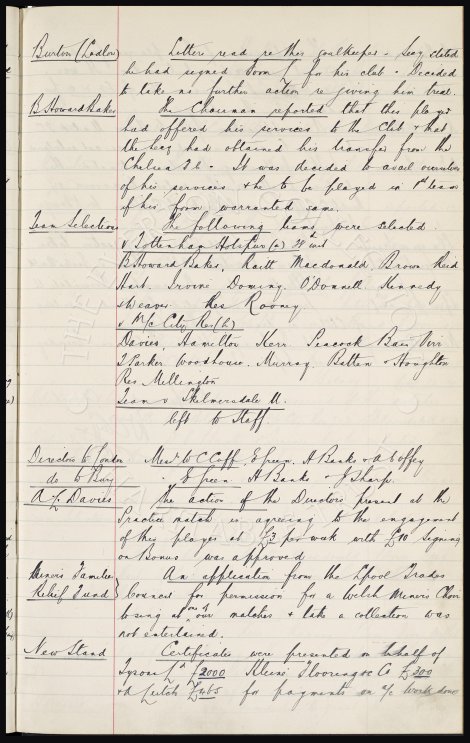 Burton (Ludlow) Letters read re this goalkeeper. Secy stated
he had signed Form for his club. Decided
to take no further action re giving him trial.
B Howard Baker The Chairman reported that this player
had offered his services to the Club & that
the Secy had obtained his transfer from the
Chelsea F.C. It was decided to avail ourselves
of his services & he to be played in 1st team
if his form warranted same.
Team Selections The following teams were selected
v Tottenham Hotspur (a) 28 inst
B Howard Baker, Raitt Macdonald, Brown Reid
Hart, Irvine Dominy, O'Donnell Kennedy
& Weaver. Res Rooney.
v M/c City Res (h)
Davies, Hamilton Kerr, Peacock Bain Virr
T Parker, Woodhouse, Murray, Batten & Houghton
Res. Millington
Team v Skelmersdale U.
left to Staff.
Directors to London Messrs W C Cuff, E Green, A Banks & A Coffey
do to Bury E Green A Banks & J Sharp.
A L Davies The action of the Directors present at the
Practice match in agreeing to the engagement
of this player at £3 per week with £10 signing
on Bonus was approved
Miners Families
Relief Fund } An application from the Lpool Trades
Council for permission for a Welsh Miners Choir
to sing at one of our matches & take a collection was
not entertained.
New Stand Certificates were presented on behalf of
Tysons Ld £2000 Kleine Flooring & Co £300
& A Leitch £465 for payments on a/c work done